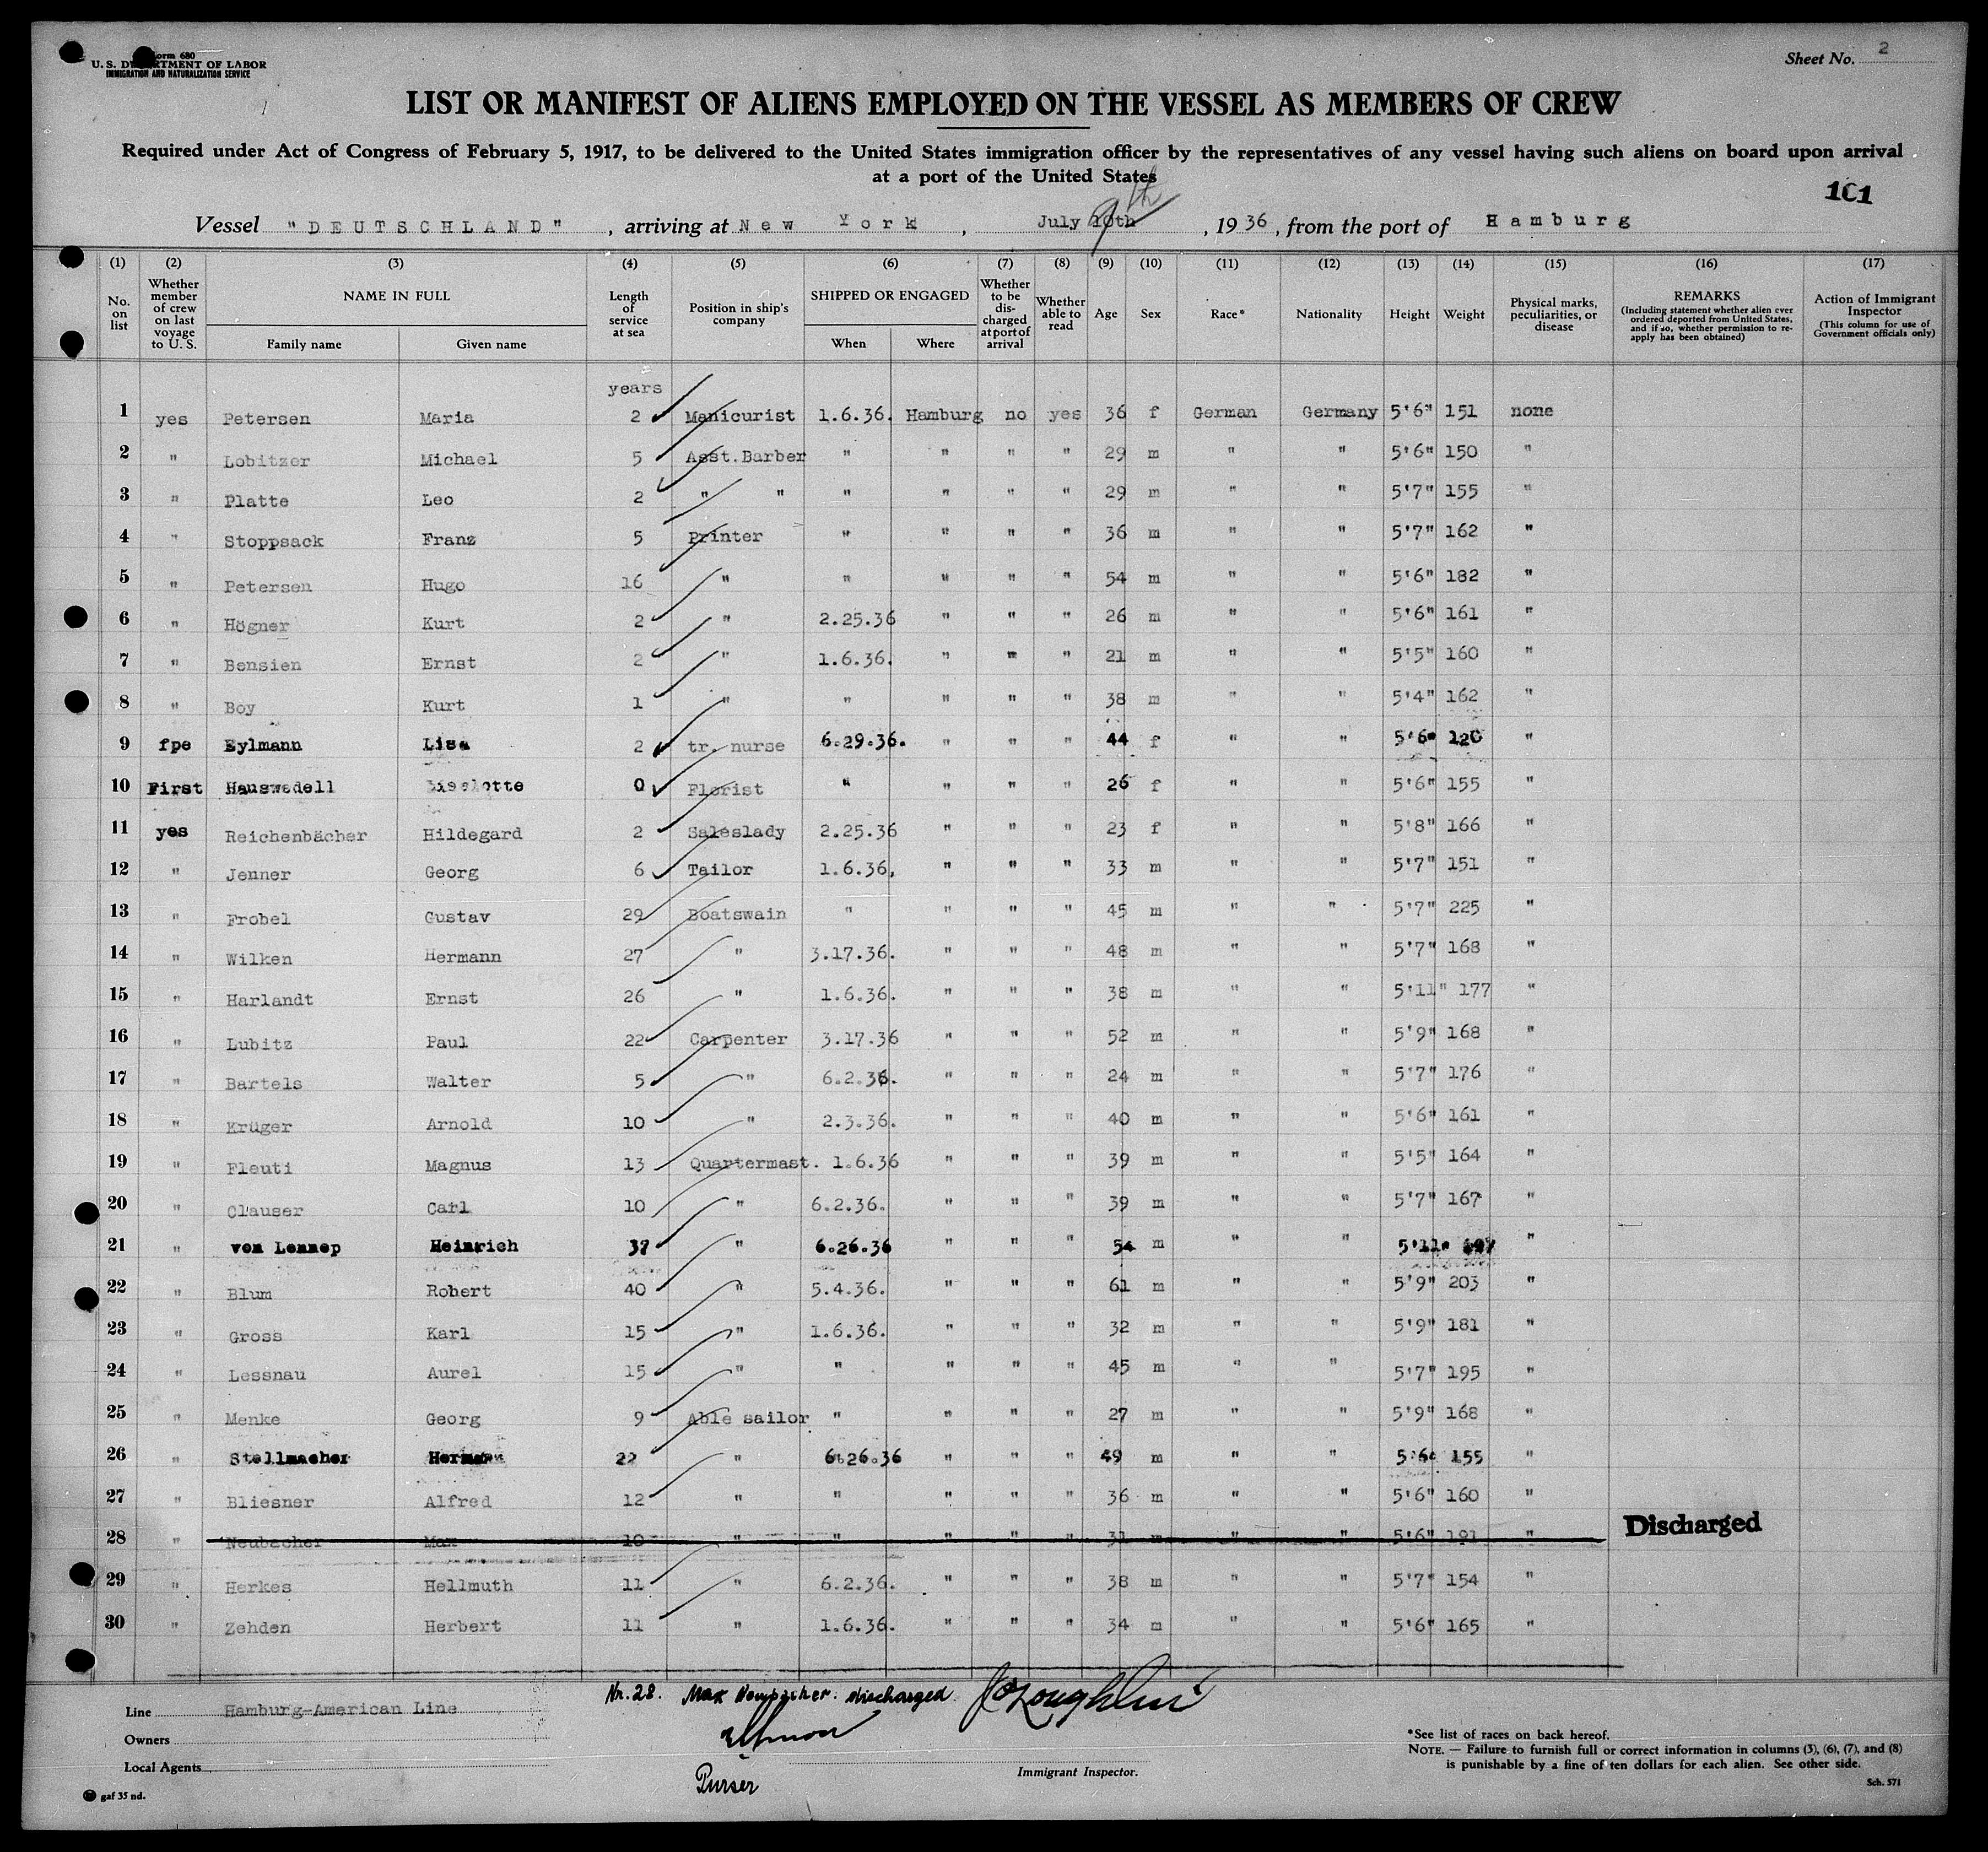 Form 680
U. S. DEPARTMENT OF LABOR
IMMIGRATION AND NATURALIZATION SERVICE
Sheet No. 2
LIST OR MANIFEST OF ALIENS EMPLOYED ON THE VESSEL AS MEMBERS OF CREW
Required under Act of Congress of February 5, 1917, to be delivered to the United States immigration officer by the representatives of any vessel having such aliens on board upon arrival
at a port of the United States
101
Vessel "DEUTSCHLAND", arriving at New York, July 10th 9th, 1936, from the port of Hamburg
(1) (2) (3) (4) (5) (6) (7) (8) (9) (10) (11) (12) (13) (14) (15) (16) (17)
No. on list
Whether member of crew on last voyage to U. S.
NAME IN FULL
Family name Given name
Length of service at sea
Position in ship's company
SHIPPED OR ENGAGED
When Where
Whether to be discharged at port of arrival
Whether able to read
Age
Sex
Race*
Nationality
Height
Weight
Physical marks, peculiarities, or disease
REMARKS
(Including statement whether alien ever ordered deported from United States, and if so, whether permission to reapply has been obtained)
Action of Immigrant Inspector
(This column for use of Government officials only)
years
1 yes Petersen Maria 2 Manicurist 1.6.36. Hamburg no yes 36 f German Germany 5'6" 151 none
2 " Lobitzer Michael 5 Asst.Barber " " " " 29 m " " 5'6" 150 "
3 " Platte Leo 2 " " " " " " 29 m " " 5'7" 155 "
4 " Stoppsack Franz 5 Printer " " " " 36 m " " 5'7" 162 "
5 " Petersen Hugo 16 " " " " " 54 m " " 5'6" 182 "
6 " Högner Kurt 2 " 2.25.36 " " " 26 m " " 5'6" 161 "
7 " Bensien Ernst 2 " 1.6.36. " " " 21 m " " 5'5" 160 "
8 " Boy Kurt 1 " " " " " 38 m " " 5'4" 162 "
9 fpe Eylmann Lisa 2 tr. nurse 6.29.36. " " " 44 f " " 5'6" 120 "
10 First Hauswedell Lieslotte 0 Florist " " " " 26 f " " 5'6" 155 "
11 yes Reichenbächer Hildegard 2 Saleslady 2.25.36 " " " 23 f " " 5'8" 166 "
12 " Jenner Georg 6 Tailor 1.6.36, " " " 33 m " " 5'7" 151 "
13 " Frobel Gustav 29 Boatswain " " " " 45 m " " 5'7" 225 "
14 " Wilken Hermann 27 " 3.17.36. " " " 48 m " " 5'7" 168 "
15 " Harlandt Ernst 26 " 1.6.36. " " " 38 m " " 5'11" 177 "
16 " Lubitz Paul 22 Carpenter 3.17.36 " " " 52 m " " 5'9" 168 "
17 " Bartels Walter 5 " 6.2.36. " " " 24 m " " 5'7" 176 "
18 " Krüger Arnold 10 " 2.3.36. " " " 40 m " " 5'6" 161 "
19 " Fleuti Magnus 13 Quartermast. 1.6.36 " " " 39 m " " 5'5" 164 "
20 " Clauser Carl 10 " 6.2.36. " " " 39 m " " 5'7" 167 "
21 " von Lennep Heinrich 37 " 6.26.36 " " " 54 m " " 5'11" "
22 " Blum Robert 40 " 5.4.36. " " " 61 m " " 5'9" 203 "
23 " Gross Karl 15 " 1.6.36. " " " 32 m " " 5'9" 181 "
24 " Lessnau Aurel 15 " " " " " 45 m " " 5'7" 195 "
25 " Menke Georg 9 Able sailor " " " " 27 m " " 5'9" 168 "
26 " Stellmacher Hermann 22 " 6.26.36 " " " 49 m " " 5'6" 155 "
27 " Bliesner Alfred 12 " " " " " 36 m " " 5'6" 160 "
28 " Neubacher Max 10 " " " " " 31 m " " 5'6" 191 " Discharged
29 " Herkes Hellmuth 11 " 6.2.36. " " " 38 m " " 5'7" 154 "
30 " Zehden Herbert 11 " 1.6.36. " " " 34 m " " 5'6" 165 "
Nr. 28. Max Neubacher. discharged
Line Hamburg-American Line
Owners
Local Agents
Purser
Immigrant Inspector.
*See list of races on back hereof.
NOTE. — Failure to furnish full or correct information in columns (3), (6), (7), and (8)
is punishable by a fine of ten dollars for each alien. See other side.
gaf 35 nd.
Sch. 571